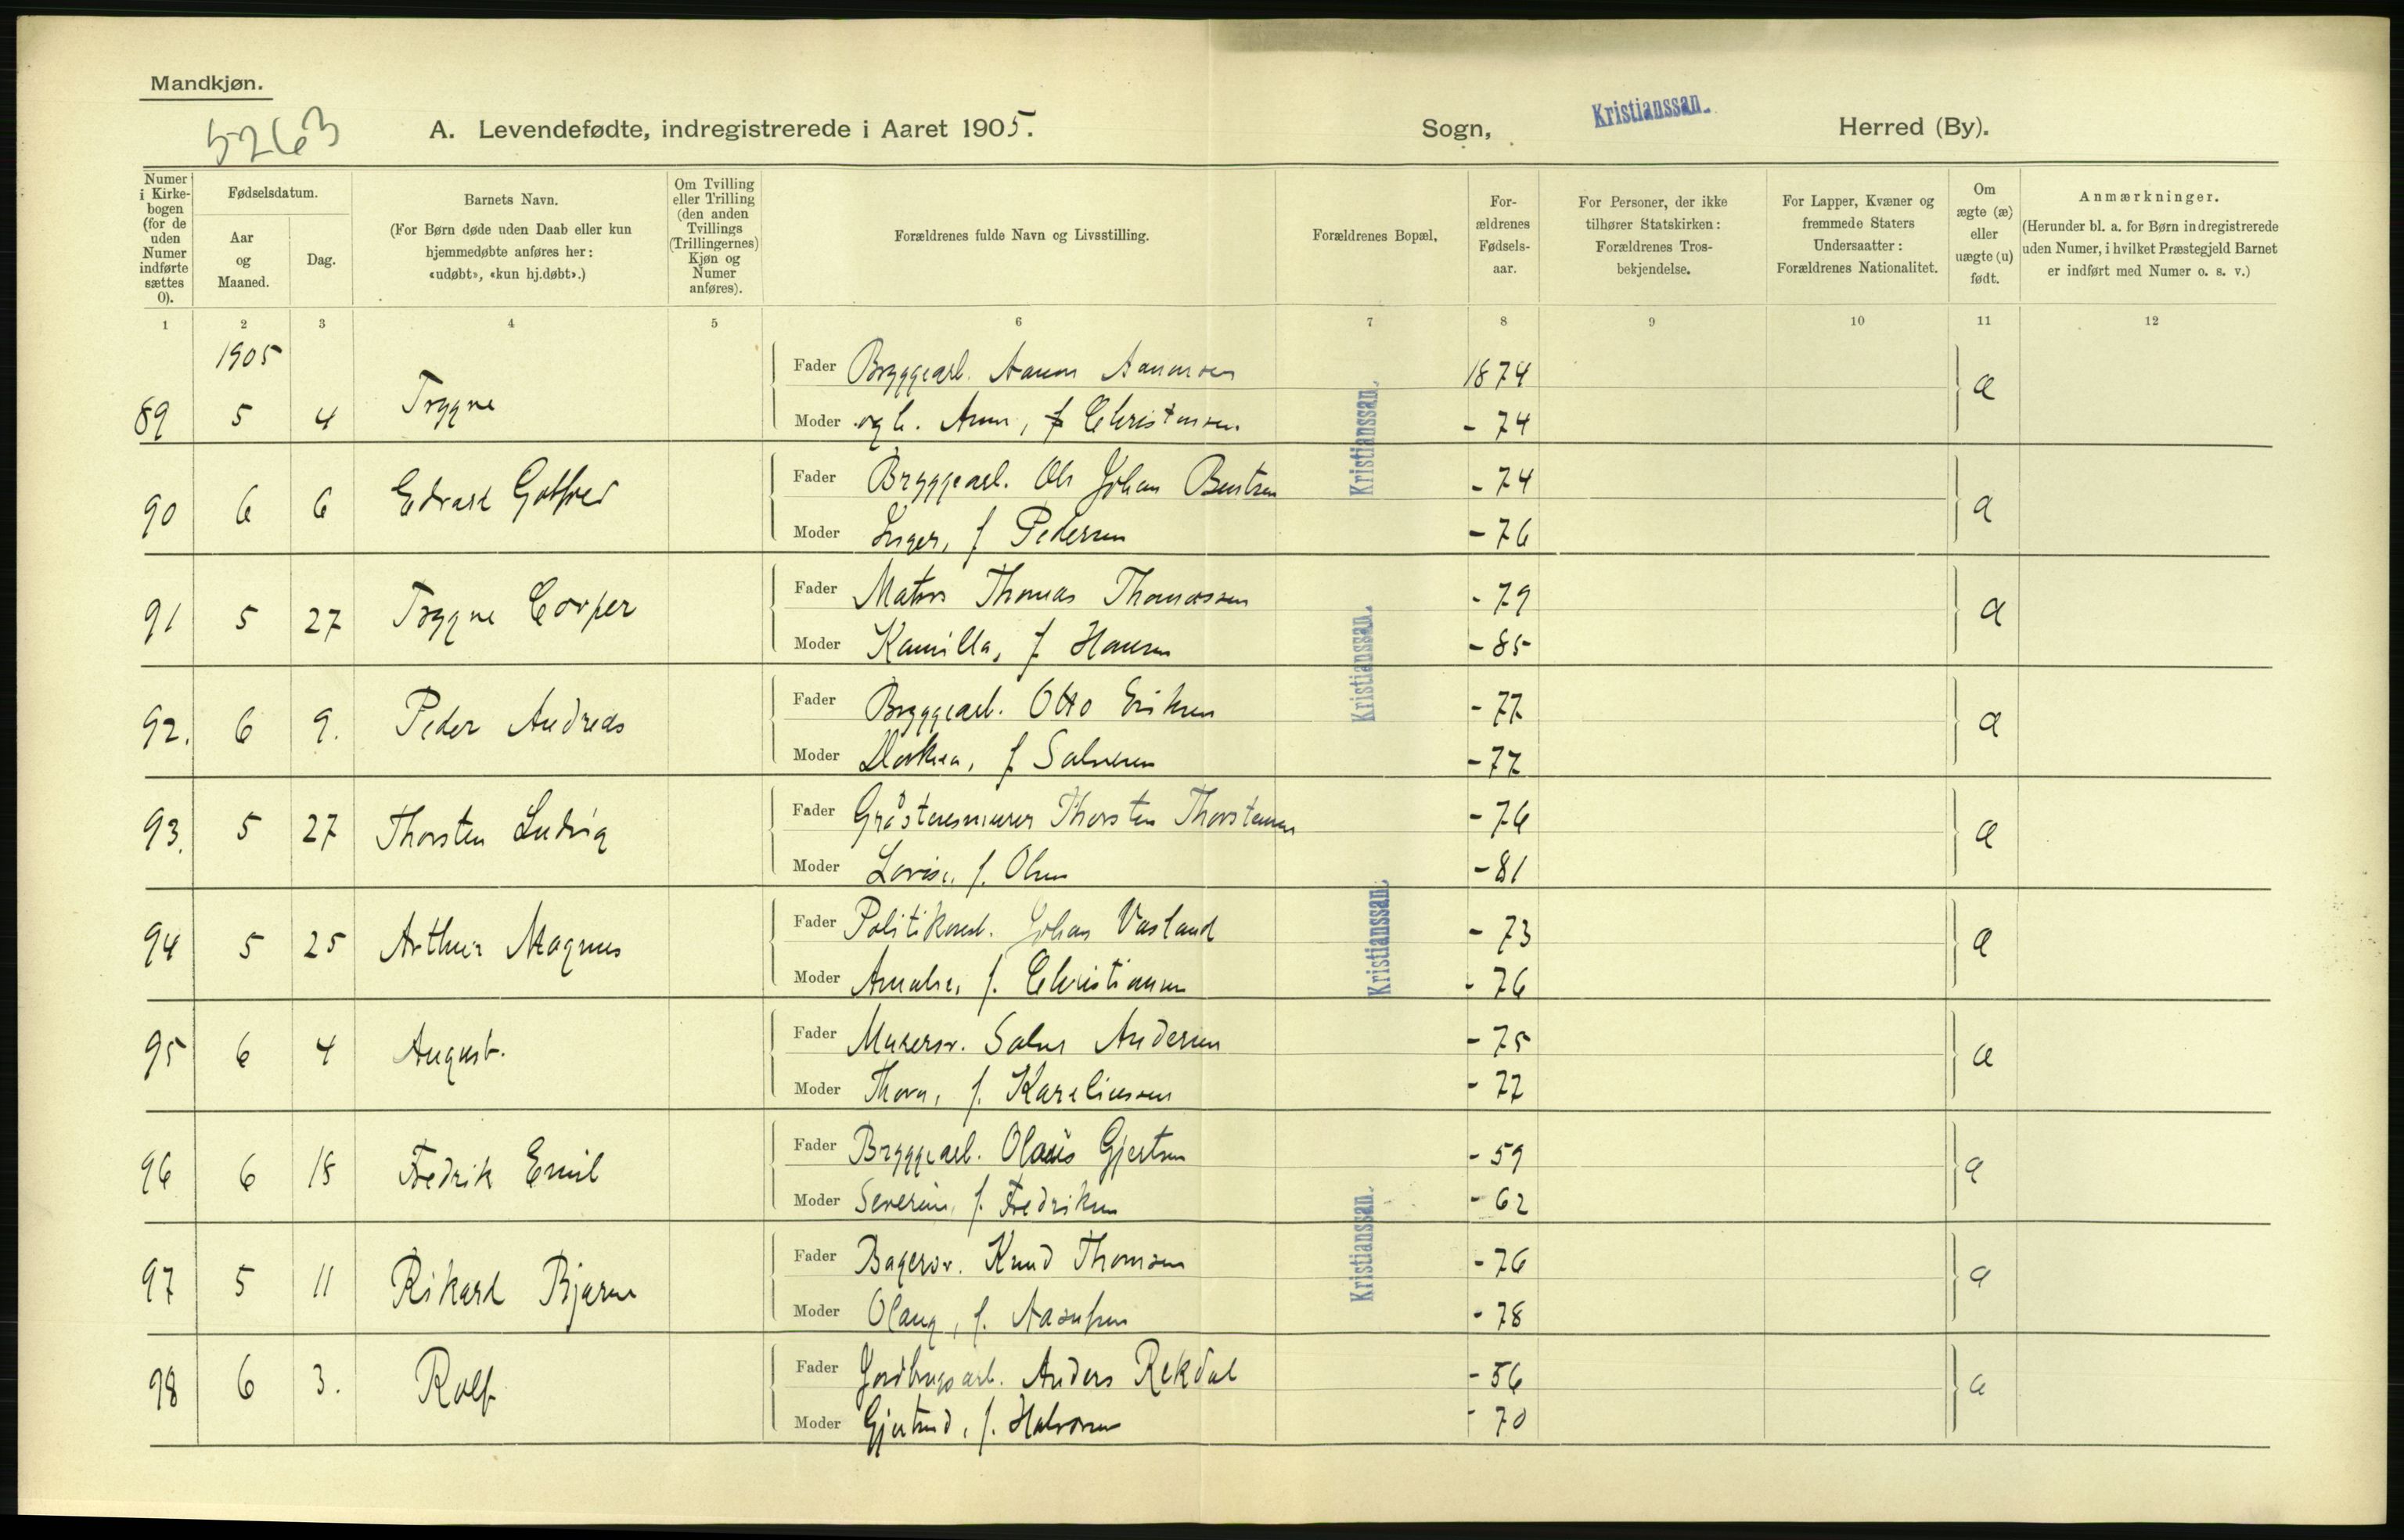 Mandkjøn.
5263
A. Levendefødte, indregistrerede i Aaret 1905. Sogn, Kristianssan. Herred (By).
Numer i Kirkebogen (for de uden Numer indførte sættes 0).
Fødselsdatum.
Aar og Maaned.
Dag.
Barnets Navn.
(For Børn døde uden Daab eller kun hjemmedøbte anføres her: «udøbt», «kun hj.døbt».)
Om Tvilling eller Trilling (den anden Tvillings (Trillingernes) Kjøn og Numer anføres).
Forældrenes fulde Navn og Livsstilling.
Forældrenes Bopæl.
Forældrenes Fødselsaar.
For Personer, der ikke tilhører Statskirken: Forældrenes Trosbekjendelse.
For Lapper, Kvæner og fremmede Staters Undersaatter: Forældrenes Nationalitet.
Om ægte (æ) eller uægte (u) født.
Anmærkninger.
(Herunder bl. a. for Børn indregistrerede uden Numer, i hvilket Præstegjeld Barnet er indført med Numer o. s. v.)
1 2 3 4 5 6 7 8 9 10 11 12
1905
Fader Bryggearb. Aanon Aanonsen 1874
89 5 4 Trygve æ
Moder og h. Anna, f Christensen - 74
Kristianssan.
Fader Bryggearb. Ole Johan Bentsen - 74
90 6 6 Edvard Gotfred æ
Moder Inger, f Pedersen - 76
Fader Matros Thomas Thomassen - 79
91 5 27 Trygve Casper æ
Moder Kamilla, f Hansen - 85
Kristianssan.
Fader Bryggearb. Otto Eriksen - 77
92. 6 9. Peder Andreas æ
Moder f Salvesen - 77
Fader Gråstensmurer Thorsten Thorstensen - 76
93. 5 27 Thorsten Ludvig æ
Moder Lovise, f. Olsen - 81
Fader Politikonst. Johan Vasland - 73
94 5 25 Arthur Magnus æ
Moder Amalie, f. Christiansen - 76
Kristianssan.
Fader Murersv. Salve Andersen - 75
95 6 4 August. æ
Moder Thora, f. Kareliussen - 77
Fader Bryggearb. Olaus Gjertsen - 59
96 6 18 Fredrik Emil æ
Moder Severine, f. Fredriksen - 62
Kristianssan.
Fader Bagersv. Knud Thomsen - 76
97 5 11 Rikard Bjarne æ
Moder Olaug, f. Aasulsen - 78
Fader Jordbrugsarb. Anders Rekdal - 56
98 6 3. Rolf æ
Moder Gjertrud, f. Halvorsen - 70